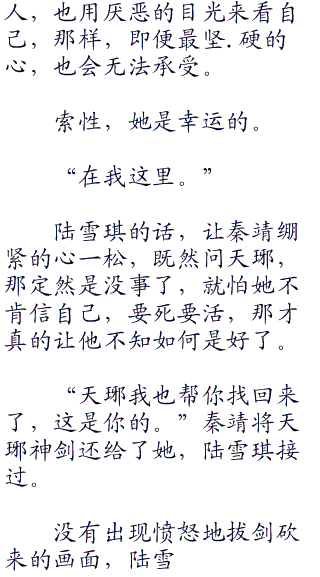 人，也用厌恶的目光来看自
己，那样，即便最坚.硬的
心，也会无法承受。
索性，她是幸运的。
“在我这里。”
陆雪琪的话，让秦靖绷
紧的心一松，既然问天琊，
那定然是没事了，就怕她不
肯信自己，要死要活，那才
真的让他不知如何是好了。
“天琊我也帮你找回来
了，这是你的。”秦靖将天
琊神剑还给了她，陆雪琪接
过。
没有出现愤怒地拔剑砍
来的画面，陆雪